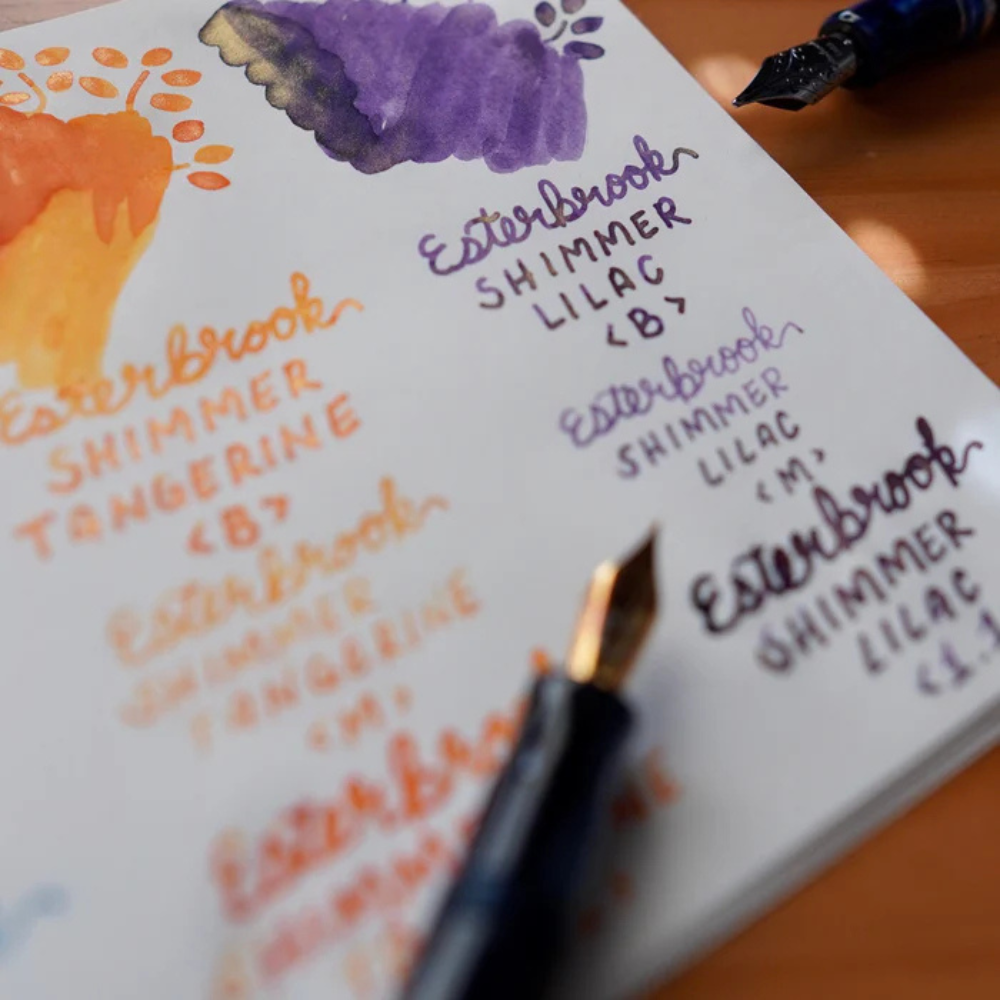 Esterbrook
SHIMMER
LILAC
<B>
Esterbrook
SHIMMER
LILAC
<M>
Esterbrook
SHIMMER
LILAC
Esterbrook
SHIMMER
TANGERINE
<B>
Esterbrook
SHIMMER
TANGERINE
<M>